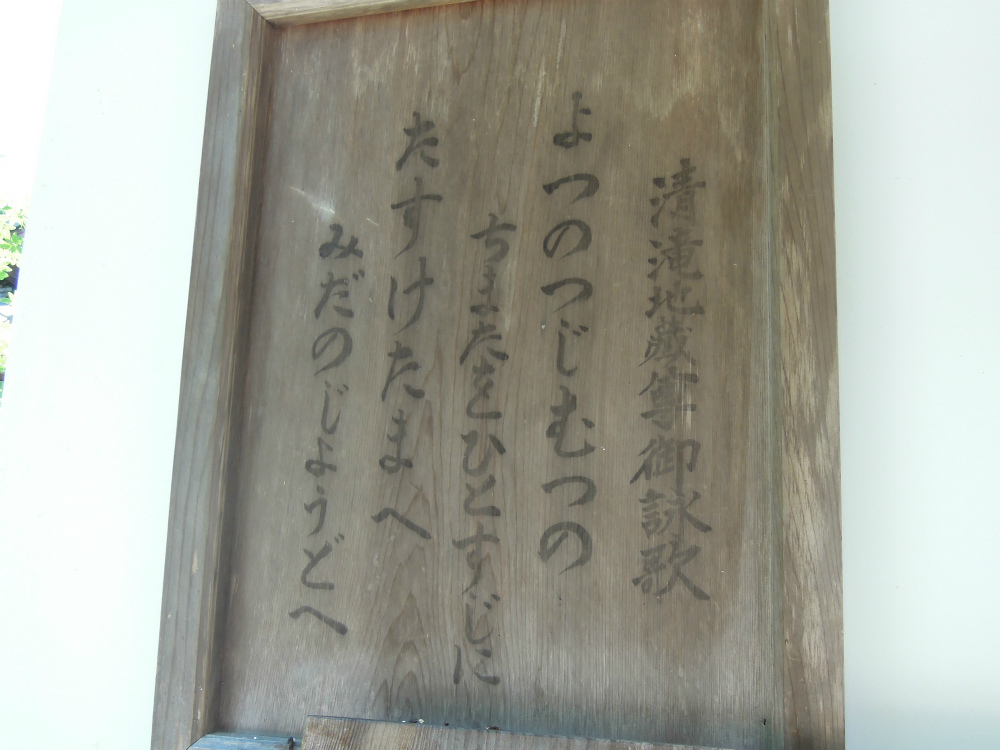 清滝地蔵尊御詠歌
よつのつじむつの
ちまたをひとすじに
たすけたまへ
みだのじょうどへ